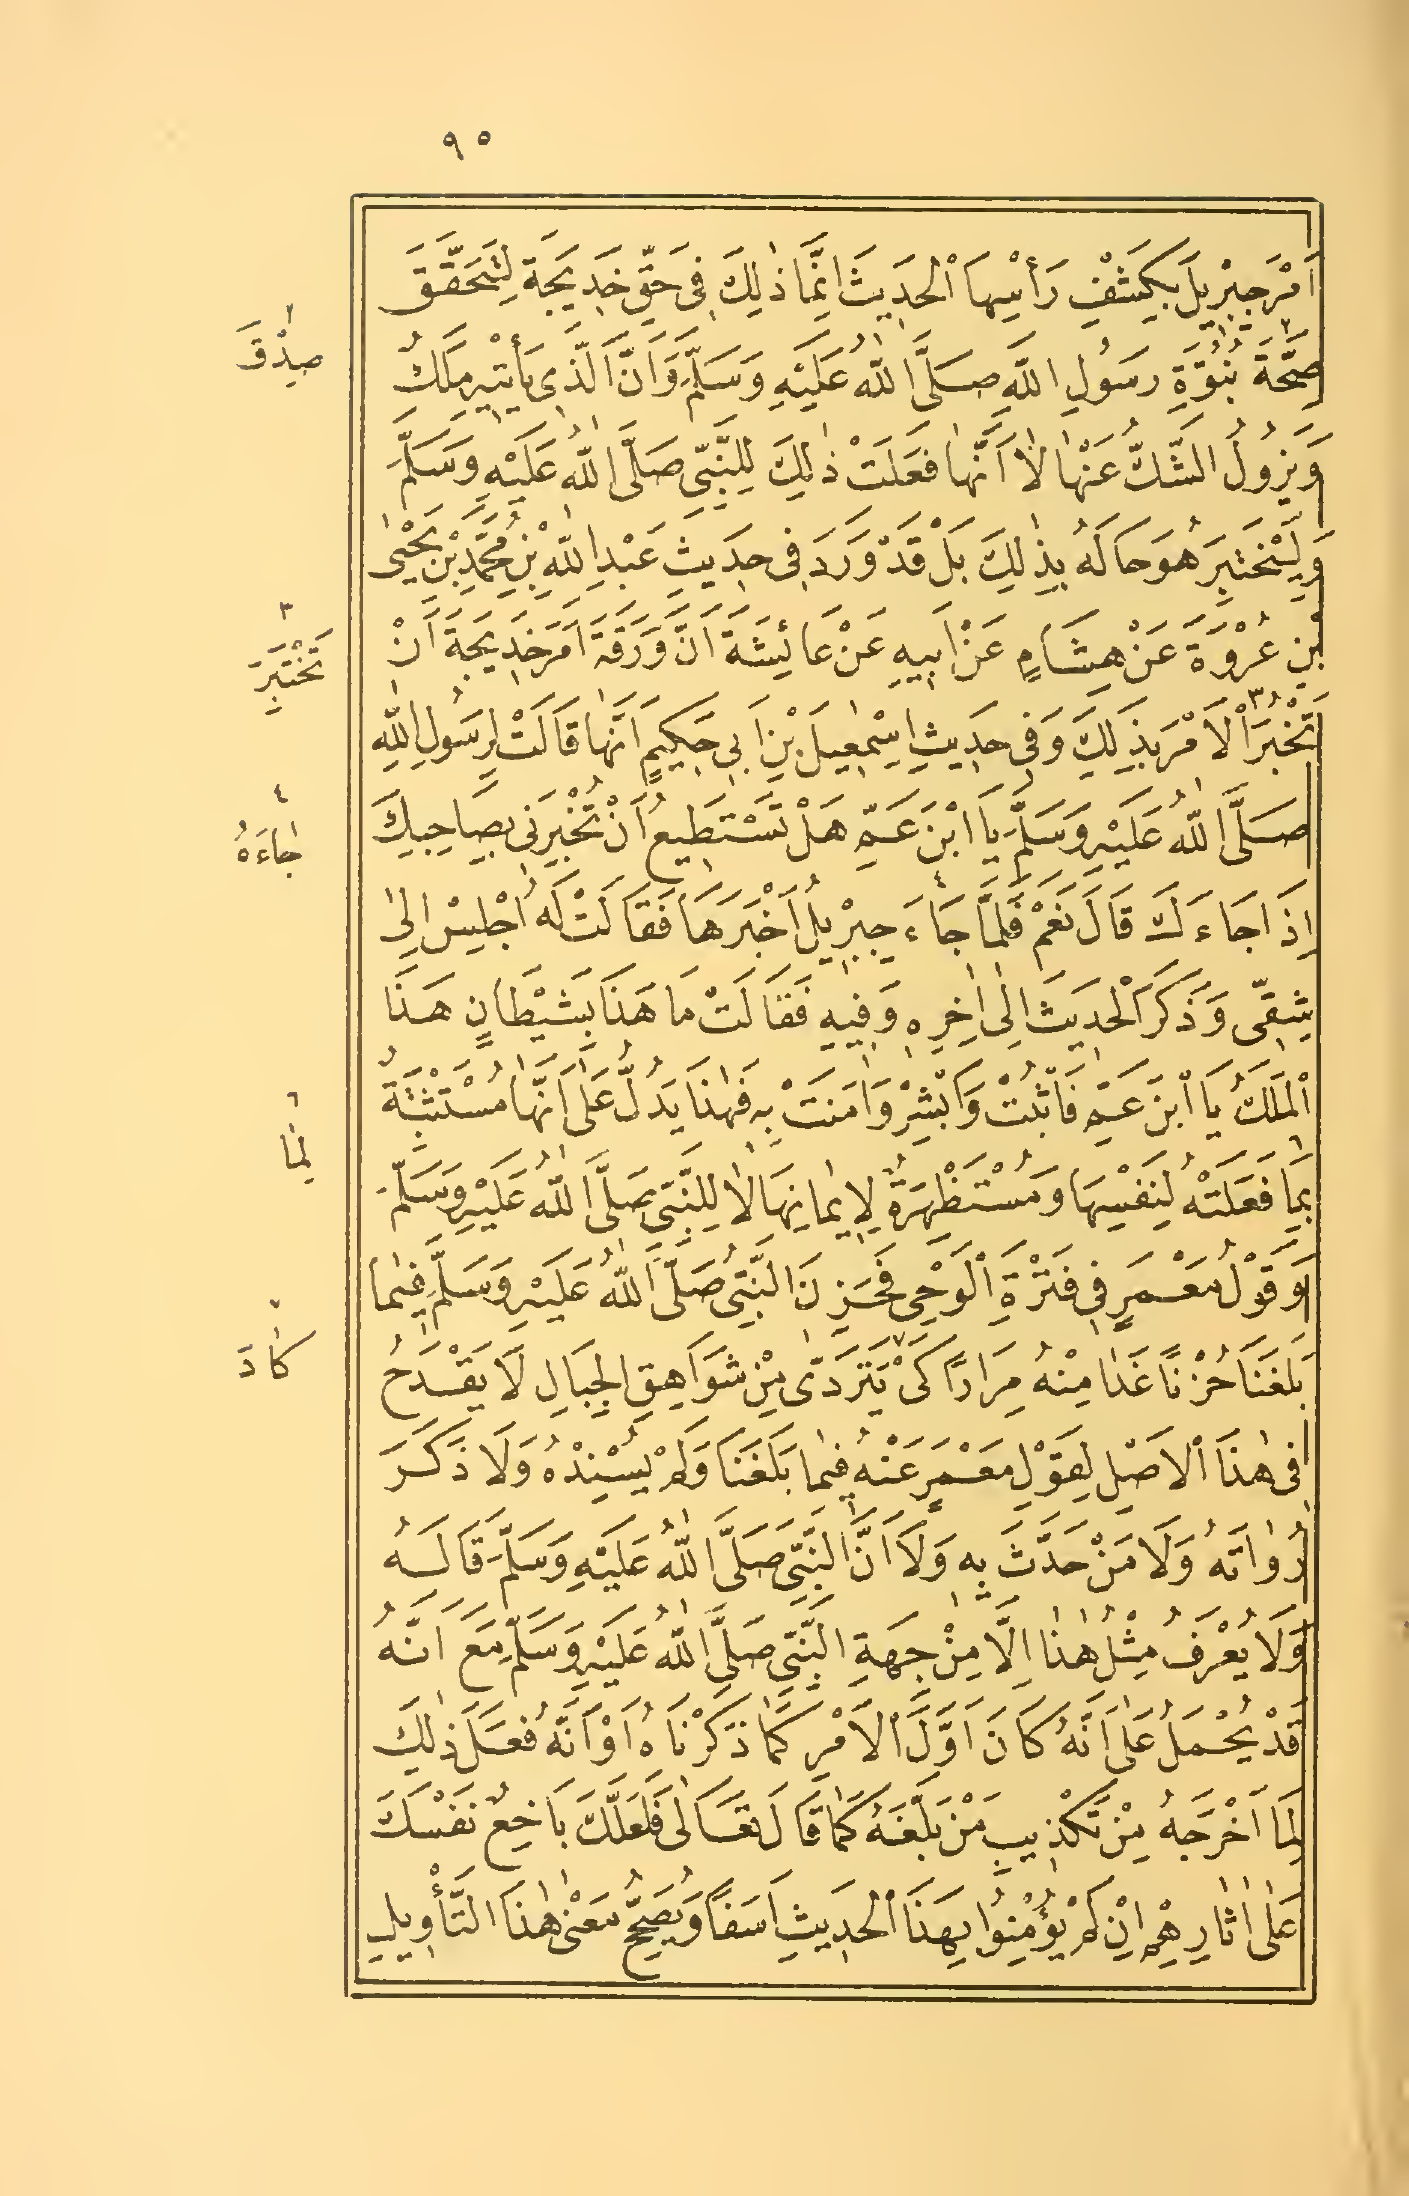 ٩٥
اَمْرَ جِبْرِيلَ بِكَشْفِ رَأْسِهَا الْحَدِيثَ اِنَّمَا ذٰلِكَ فِى حَقِّ خَدِيجَةَ لِتَتَحَقَّقَ
صِحَّةَ نُبُوَّةِ رَسُولِ اللّٰهِ صَلَّى اللّٰهُ عَلَيْهِ وَسَلَّمَ وَاَنَّ الَّذِى يَأْتِيهِ مَلَكٌ
وَيَزُولُ الشَّكُّ عَنْهَا لَا اَنَّهَا فَعَلَتْ ذٰلِكَ لِلنَّبِىِّ صَلَّى اللّٰهُ عَلَيْهِ وَسَلَّمَ
وَلِتَخْتَبِرَ هُوَ حَالَهُ بِذٰلِكَ بَلْ قَدْ وَرَدَ فِى حَدِيثِ عَبْدِ اللّٰهِ بْنِ مُحَمَّدِ بْنِ يَحْيٰى
بْنِ عُرْوَةَ عَنْ هِشَامٍ عَنْ اَبِيهِ عَنْ عَائِشَةَ اَنَّ وَرَقَةَ اَمَرَ خَدِيجَةَ اَنْ
تَخْبُرَ ٣ الْاَمْرَ بِذٰلِكَ وَفِى حَدِيثِ اِسْمٰعِيلَ بْنِ اَبِى حَكِيمٍ اَنَّهَا قَالَتْ لِرَسُولِ اللّٰهِ
صَلَّى اللّٰهُ عَلَيْهِ وَسَلَّمَ يَا ابْنَ عَمِّ هَلْ تَسْتَطِيعُ اَنْ تُخْبِرَنِى بِصَاحِبِكَ
اِذَا جَاءَكَ قَالَ نَعَمْ فَلَمَّا جَاءَ ٤ جِبْرِيلُ اَخْبَرَهَا فَقَالَتْ لَهُ اجْلِسْ اِلٰى
شِقِّى وَذَكَرَ الْحَدِيثَ اِلٰى اٰخِرِهِ وَفِيهِ فَقَالَتْ مَا هَذَا بِشَيْطَانٍ هَذَا
الْمَلَكُ يَا ابْنَ عَمِّ فَاثْبُتْ وَاَبْشِرْ وَاٰمَنَتْ بِهِ فَهٰذَا يَدُلُّ عَلٰى اَنَّهَا مُسْتَثْبِتَةٌ
بِمَا ٦ فَعَلَتْهُ لِنَفْسِهَا وَمُسْتَظْهِرَةٌ لِاِيمَانِهَا لَا لِلنَّبِىِّ صَلَّى اللّٰهُ عَلَيْهِ وَسَلَّمَ
وَقَوْلُ مَعْمَرٍ فِى فَتْرَةِ الْوَحْىِ فَحَزِنَ النَّبِىُّ صَلَّى اللّٰهُ عَلَيْهِ وَسَلَّمَ فِيمَا
بَلَغَنَا حُزْنًا غَدَا مِنْهُ مِرَارًا كَىْ ٧ يَتَرَدّٰى مِنْ شَوَاهِقِ الْجِبَالِ لَا يَقْدَحُ
فِى هٰذَا الْاَصْلِ لِقَوْلِ مَعْمَرٍ عَنْهُ فِيمَا بَلَغَنَا وَلَمْ يُسْنِدْهُ وَلَا ذَكَرَ
رُوَاتَهُ وَلَا مَنْ حَدَّثَ بِهِ وَلَا اَنَّ النَّبِىَّ صَلَّى اللّٰهُ عَلَيْهِ وَسَلَّمَ قَالَهُ
وَلَا يُعْرَفُ مِثْلُ هٰذَا اِلَّا مِنْ جِهَةِ النَّبِىِّ صَلَّى اللّٰهُ عَلَيْهِ وَسَلَّمَ مَعَ اَنَّهُ
قَدْ يُحْمَلُ عَلٰى اَنَّهُ كَانَ اَوَّلَ الْاَمْرِ كَمَا ذَكَرْنَاهُ اَوْ اَنَّهُ فَعَلَ ذٰلِكَ
لِمَا اَخْرَجَهُ مِنْ تَكْذِيبِ مَنْ بَلَّغَهُ كَمَا قَالَ تَعَالٰى فَلَعَلَّكَ بَاخِعٌ نَفْسَكَ
عَلٰى اٰثَارِهِمْ اِنْ لَمْ يُؤْمِنُوا بِهَذَا الْحَدِيثِ اَسَفًا وَيُصَحِّحُ مَعْنٰى هٰذَا التَّأْوِيلِ
صِدْقَ
٣
تَخْتَبِرَ
٤
جَاءَهُ
٦
لِمَا
٧
كَادَ